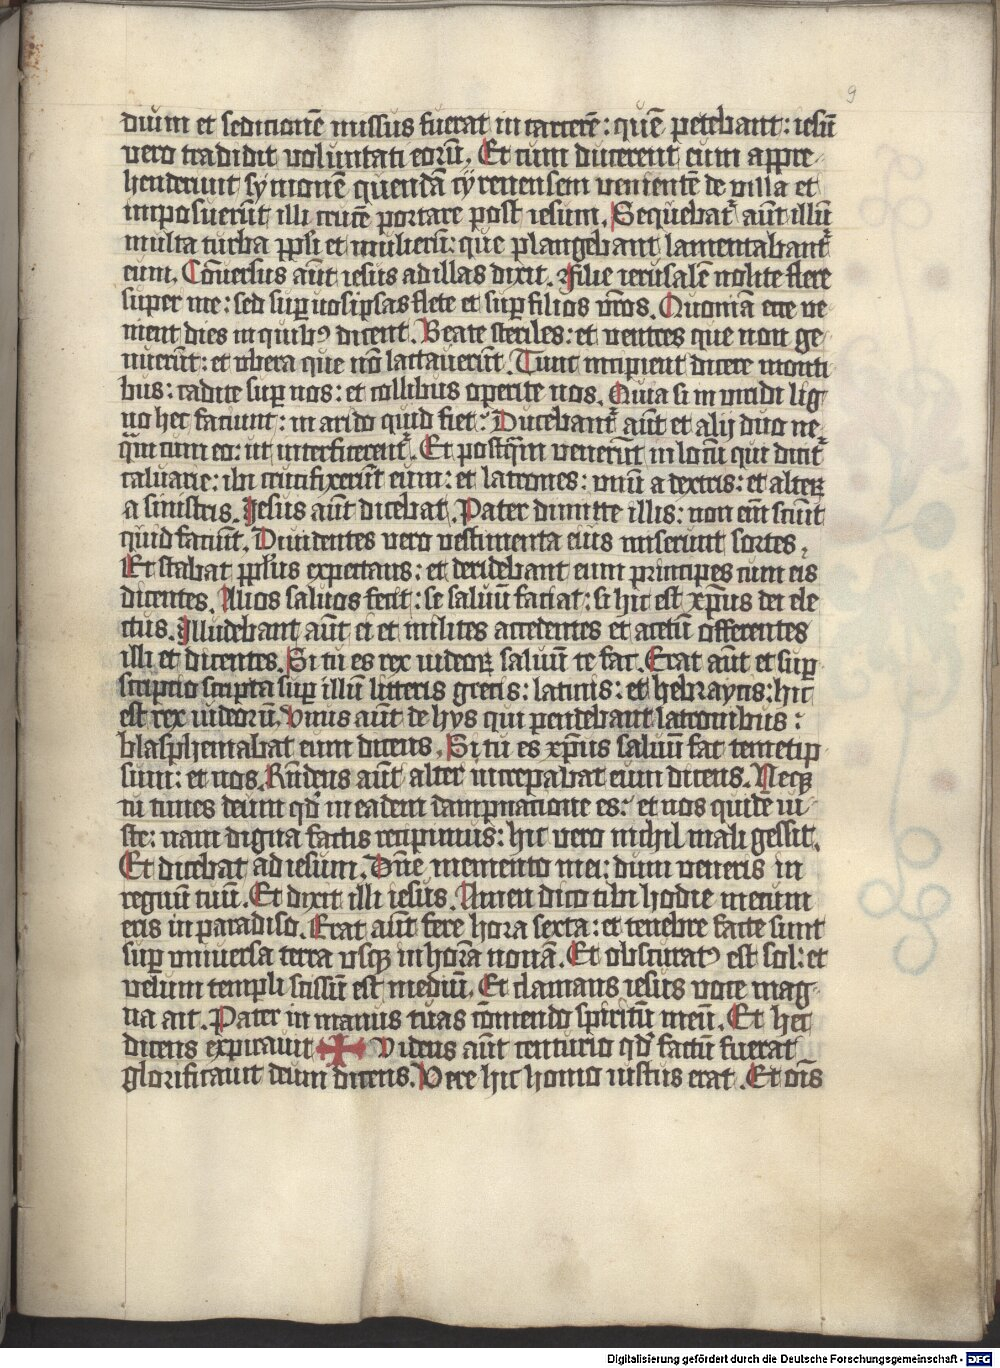 9
dium et seditionē missus fuerat in carcerē: quē petebant: iesū
vero tradidit voluntati eorū. Et cum ducerent eum appre-
henderunt symonē quendā cyrenensem venientē de villa et
imposuerūt illi crucē portare post iesum. Sequebat᷑ aūt illū
multa turba ppłi et mulierū: que plangebant lamentabant᷑
eum. Cōuersus aūt iesus ad illas dixit. Filie ierusalē nolite flere
super me: sed sup̱ uos ipsas flete et sup̱ filios vr̄os. Quoniā ecce ve
nient dies in quibꝰ dicent. Beate steriles: et ventres que non ge
nuerūt: et vbera que nō lactauerūt. Tunc incipient dicere monti
bus: cadite sup̱ nos: et collibus operite nos. Quia si in viridi lig
no hec faciunt: in arido quid fiet? Ducebant᷑ aūt et alij duo ne
qm̄ cum eo: ut interficerent᷑. Et postqm̄ venerūt in locū qui dicit᷑
caluarie: ibi crucifixerūt eum: et latrones: vnū a dextris: et alteꝝ
a sinistris. Iesus aūt dicebat. Pater dimitte illis: non em̄ sciūt
quid faciūt. Diuidentes vero vestimenta eius miserunt sortes.
Et stabat ppłus expectans: et deridebant eum principes cum eis
dicentes. Alios saluos fecit: se saluū faciat: si hic est xp̄us dei ele
ctus. Illudebant aūt ei et milites accedentes et acetū offerentes
illi et dicentes. Si tu es rex iudeoꝝ saluū te fac. Erat aūt et sup̱-
scriptio scripta sup̱ illū litteris grecis: latinis: et hebraycis: hic
est rex iudeorū. Vnus aūt de hys qui pendebant latronibus:
blasphemabat eum dicens. Si tu es xp̄us saluū fac temetip-
sum: et nos. Rn̄dens aūt alter increpabat eum dicens. Necꝫ
tu times deum qd̄ in eadem dampnatione es: et nos quidē iu-
ste: nam digna factis recipimus: hic vero nichil mali gessit.
Et dicebat ad iesum. Dn̄e memento mei: dum veneris in
regnū tuū. Et dixit illi iesus. Amen dico tibi hodie mecum
eris in paradiso. Erat aūt fere hora sexta: et tenebre facte sunt
sup̱ vniuersa terra vsqꝫ in horā nonā. Et obscuratꝰ est sol: et
velum templi scissū est mediū. Et clamans iesus voce mag-
na ait. Pater in manus tuas cōmendo spiritū meū. Et hec
dicens expirauit ✠ Videns aūt centurio qd̄ factū fuerat
glorificauit deum dicens. Vere hic homo iustus erat. Et oīs
Digitalisierung gefördert durch die Deutsche Forschungsgemeinschaft - DFG